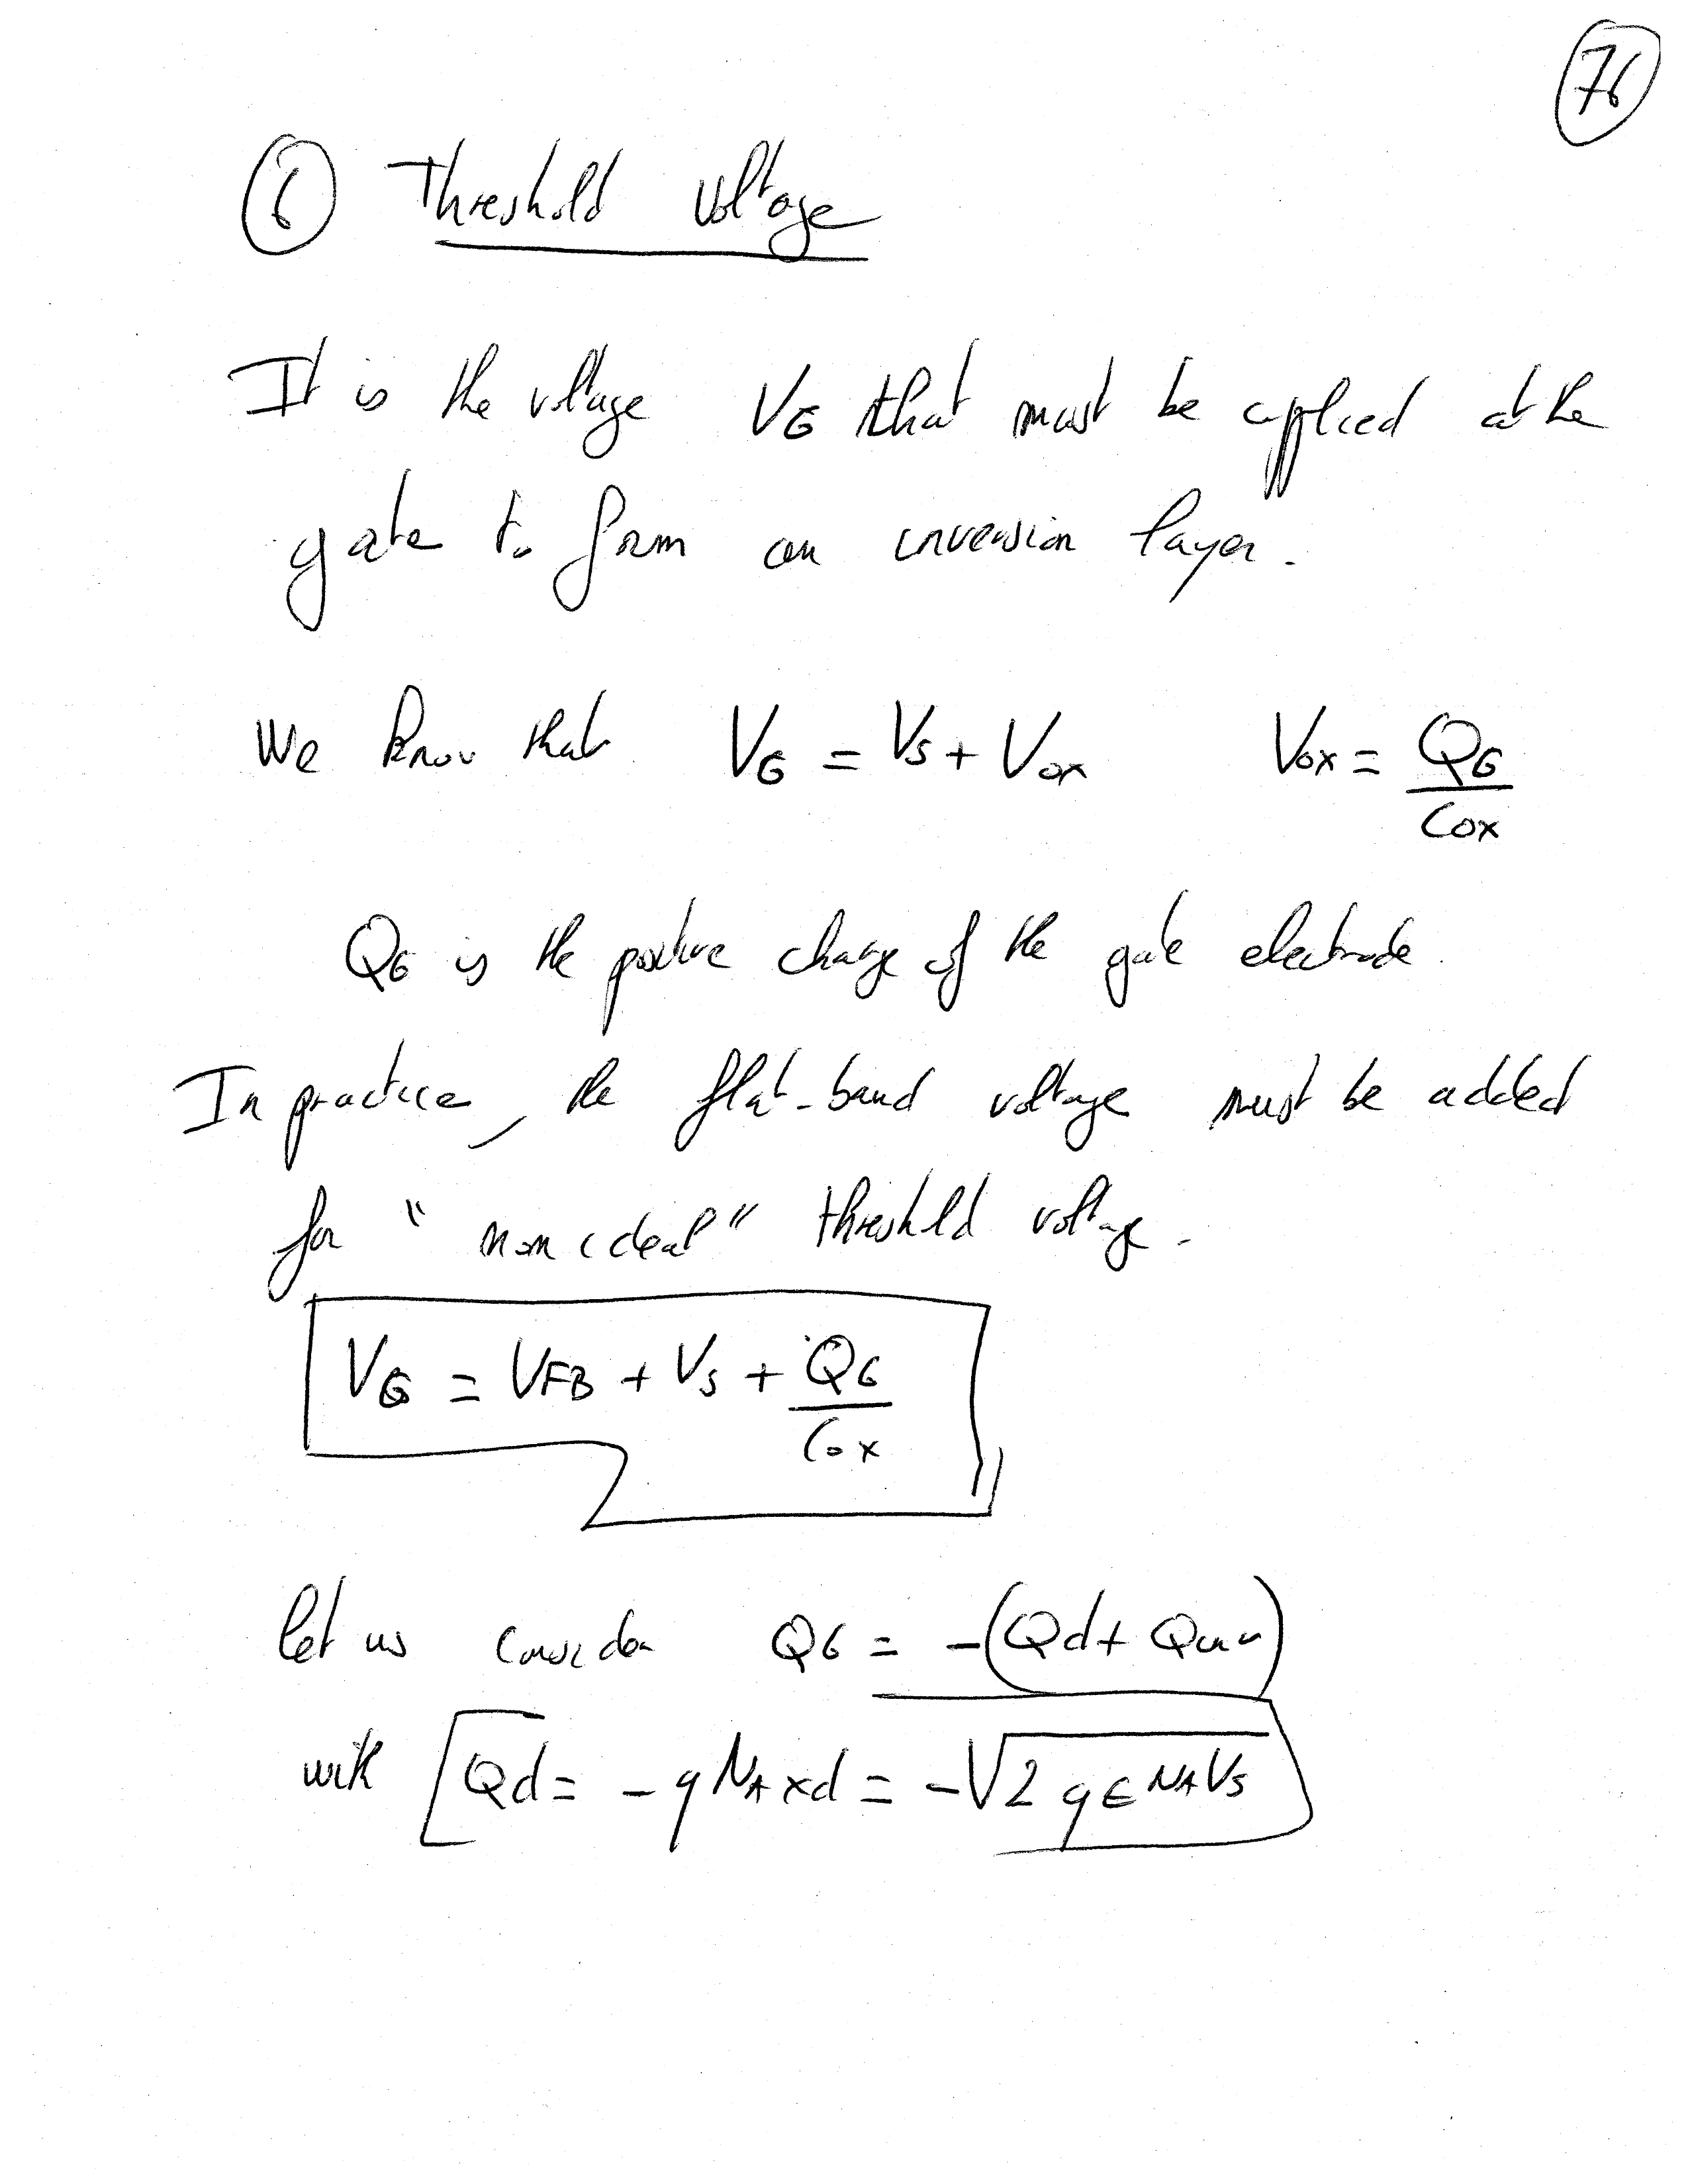 76
6 Threshold voltage
It is the voltage VG that must be applied at the
gate to form an inversion layer.
We know that VG = VS + Vox Vox = QG / Cox
QG is the positive charge of the gate electrode.
In practice, the flat-band voltage must be added
for "non ideal" threshold voltage.
VG = VFB + VS + QG / Cox
let us consider QG = -(Qd + Qinv)
with Qd = - q NA xd = -√2 q ϵ NA VS